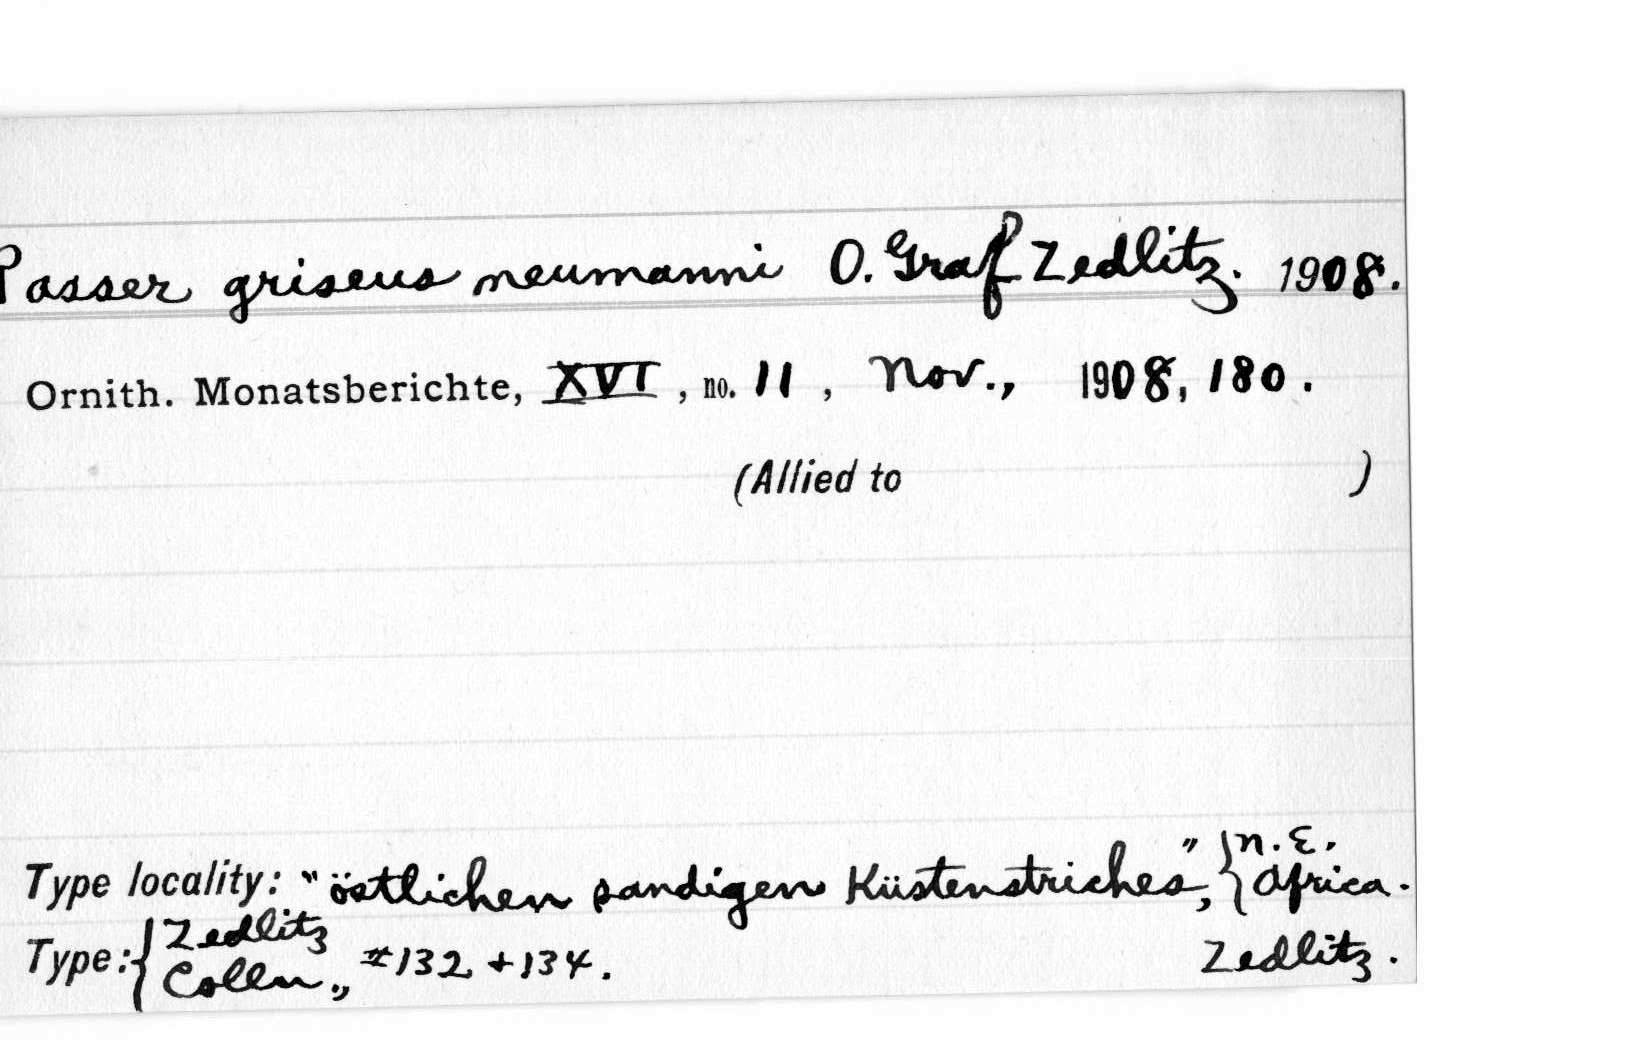 Passer griseus neumanni O. Graf Zedlitz. 1908.
Ornith. Monatsberichte, XVI, no. 11, Nov., 1908, 180.
(Allied to )
Type locality: "östlichen sandigen Küstenstriches", { N. E. Africa.
Type: { Zedlitz Colln., #132 + 134. Zedlitz.